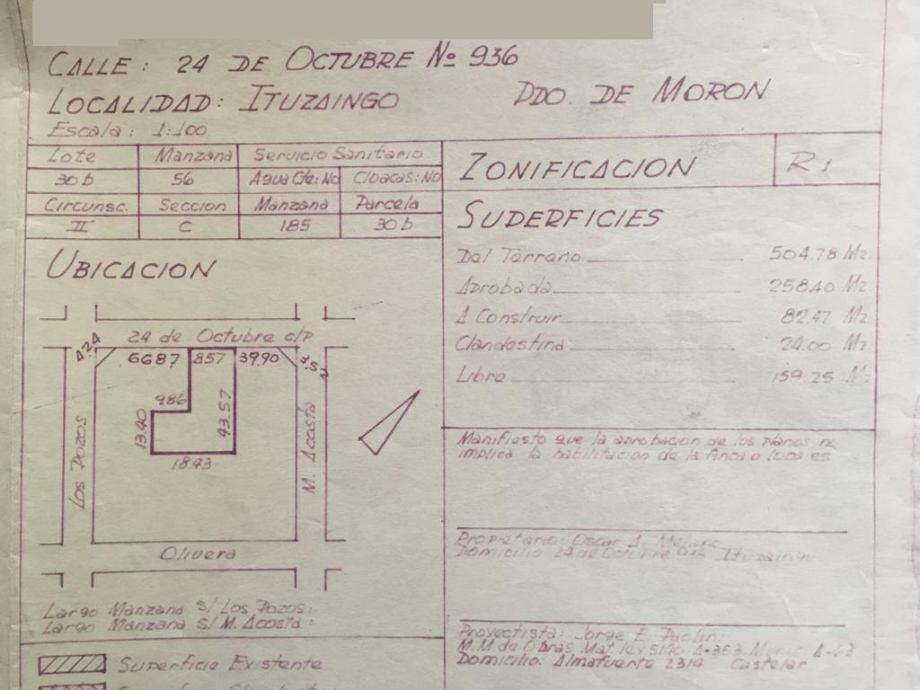 CALLE: 24 DE OCTUBRE Nº 936
LOCALIDAD: ITUZAINGO PDO. DE MORON
Escala: 1:100
Lote Manzana Servicio Sanitario
30 b 56 Agua Cte: No Cloacas: No
Circunsc. Seccion Manzana Parcela
II C 185 30 b
UBICACION
24 de Octubre c/P
4.24
6687 857 3990
986
13.40
43.57
18.43
LOS POZOS
M. Acosta
Olivera
Largo Manzana s/ Los Pozos:
Largo Manzana s/ M. Acosta:
Superficie Existente
ZONIFICACION R1
SUPERFICIES
Del Terreno 504.78 M2.
Aprobada 258.40 M2
A Construir 82.47 M2
Clandestina 24.00 M2
Libre 159.25 M2
Manifiesto que la aprobacion de los planos no
implica la habilitacion de la finca o locales
Propietario: Oscar A.
Domicilio 24 de Octubre 936 Ituzaingo
Proyectista: Jorge E.
M.M. de Obras Mat. ley
Domicilio: Almafuerte 2314 Castelar